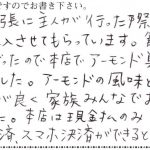 ですのでお書き下さい。
張に主人が行った際
入させてもらっています。
ったので本店でアーモンド
した。アーモンドの風味と
が良く家族みんなでお
た。本店は現金払のみ
済、スマホ決済ができると